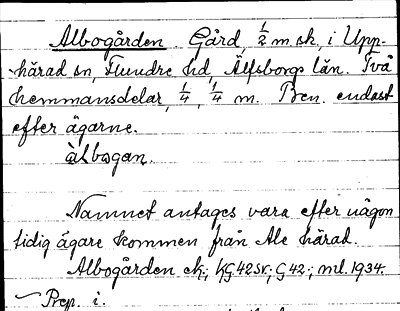 Albogården. Gård, 1/2 m. sk., i Upp-
härad sn, Flundre hd, Älfsborgs län. Två
hemmansdelar, 1/4, 1/4 m. Ben. endast
efter ägarne.
àlbogan.
Namnet antages vara efter någon
tidig ägare kommen från Ale härad.
Albogården ek.; KG 42 sv.; G 42.; ml. 1934.
Prep. i.